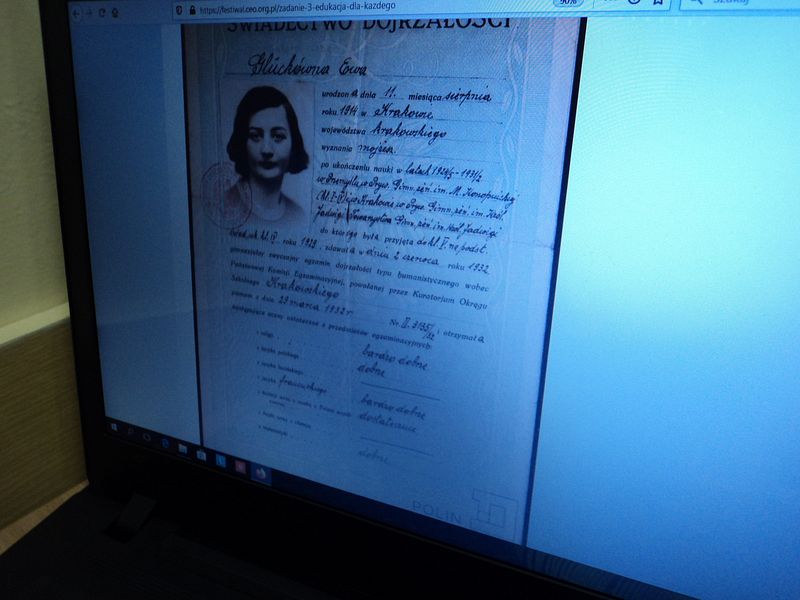 https://festiwal.ceo.org.pl/zadanie-3-edukacja-dla-kazdego
90%
Szukaj
ŚWIADECTWO DOJRZAŁOŚCI
Glückówna Ewa
urodzona dnia 11. miesiąca sierpnia
roku 1914 w Krakowie
województwa krakowskiego
wyznania mojżesz.
po ukończeniu nauki w latach
w Przemyślu w Pryw. Gimn. żeń. im. M. Konopnickiej
(kl. I-IV) i w Krakowie w Pryw. Gimn. żeń. im. Król.
Jadwigi Gimn. żeń. im. Król. Jadwigi
do którego była przyjęta do kl. V. na podst.
kl. IV. roku 1928, zdawała w dniu 2 czerwca roku 1932
gimnazjalny zwyczajny egzamin dojrzałości typu humanistycznego wobec
Państwowej Komisji Egzaminacyjnej, powołanej przez Kuratorjum Okręgu
Szkolnego Krakowskiego
pismem z dnia 29 marca 1932 r. Nr. II. 3135/32 i otrzymała
następujące oceny ostateczne z przedmiotów egzaminacyjnych:
z religji bardzo dobre
z języka polskiego dobre
z języka łacińskiego
z języka francuskiego bardzo dobre
dostateczne
z matematyki dobre
POLIN